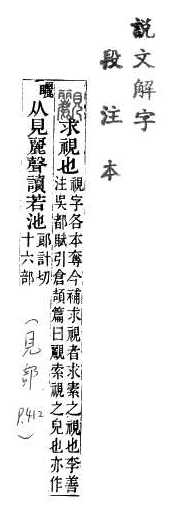 説文解字
段注本
䚕求視也
視字各本奪今補求視者求索之視也李善
注吳都賦引倉頡篇曰䚕索視之皃也亦作
矖
从見麗聲讀若池
郎計切
十六部
(見部
P.412)